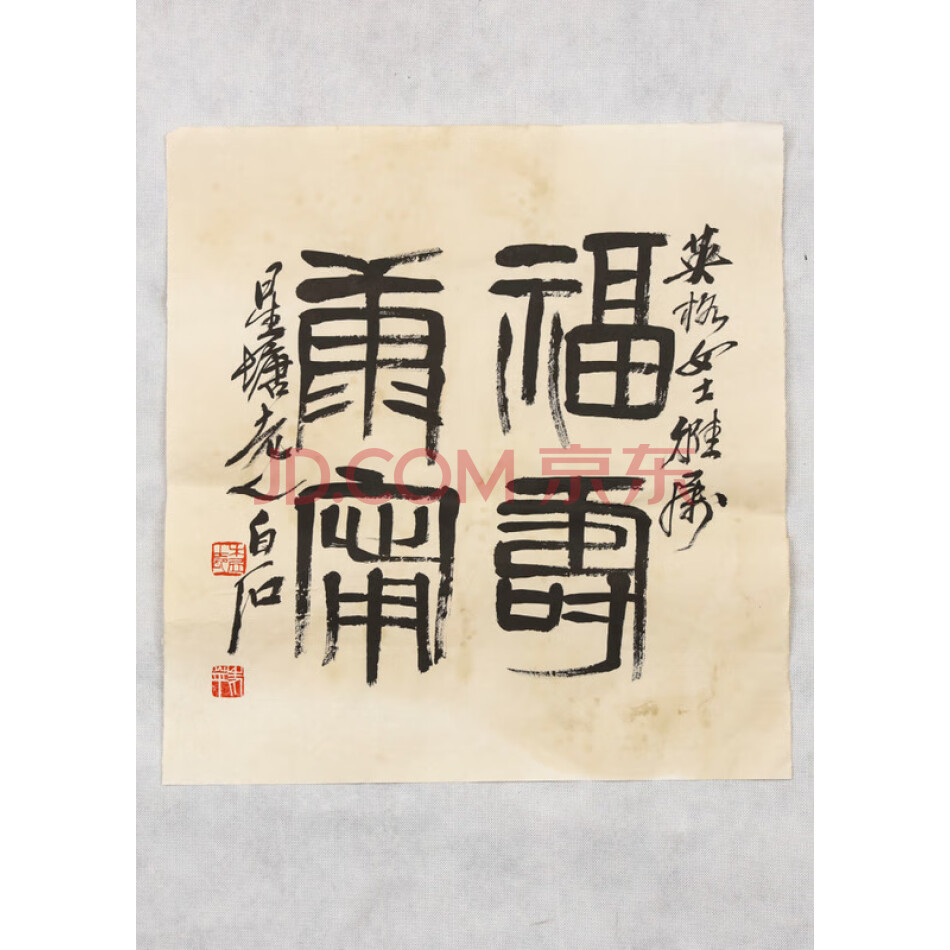 英格女士雅属
福壽
康甯
星塘老人白石
JD.COM 京东